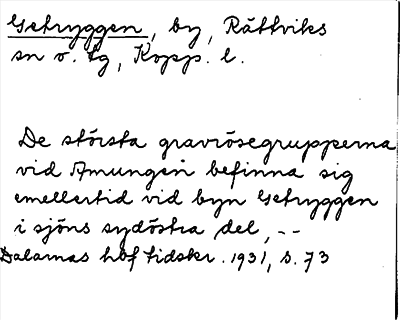 Getryggen, by, Rättviks
sn o. tg, Kopp. l.
De största gravrösegrupperna
vid Amungen befinna sig
emellertid vid byn Getryggen
i sjöns sydöstra del, --
Dalarnas hbf tidskr. 1931, s. 73